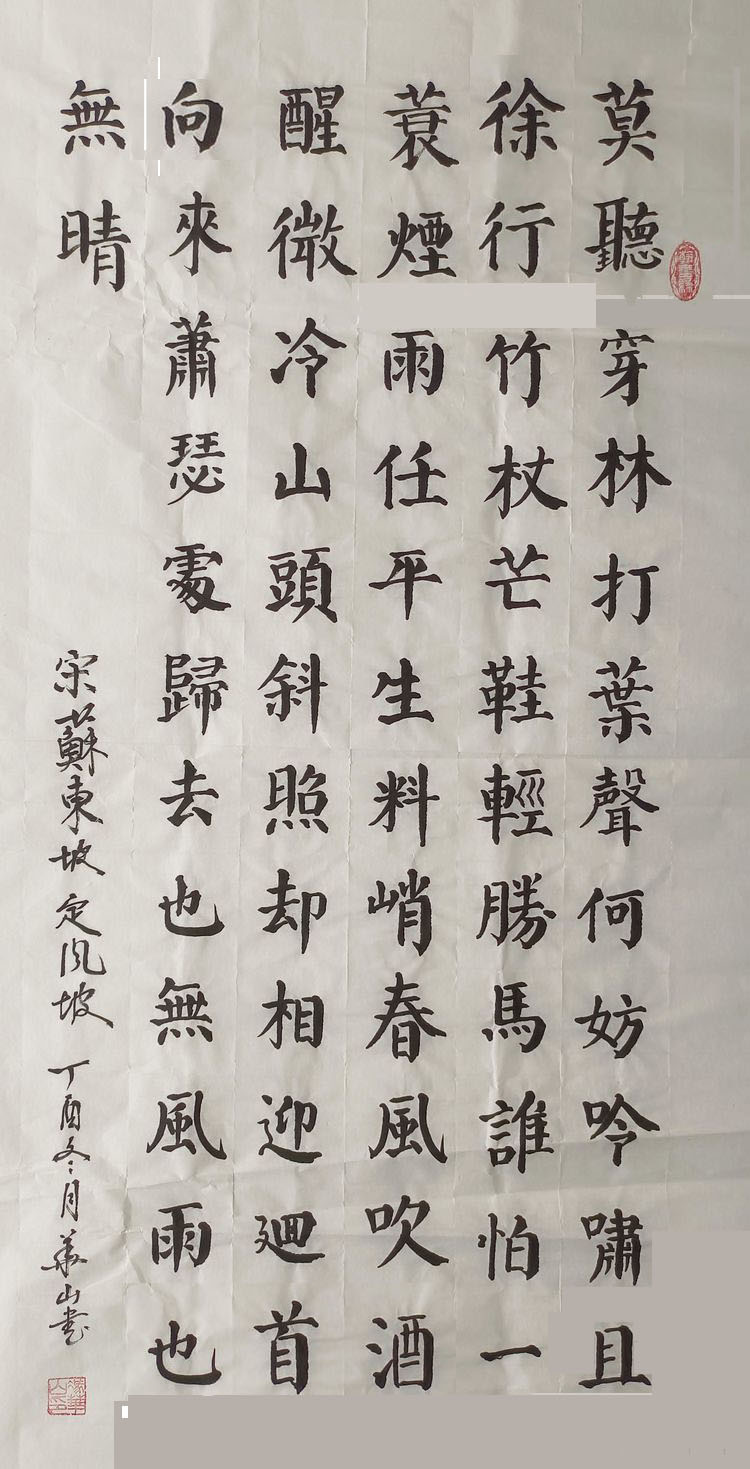 莫聽穿林打葉聲何妨吟嘯且
徐行竹杖芒鞋輕勝馬誰怕一
蓑煙雨任平生料峭春風吹酒
醒微冷山頭斜照却相迎廻首
向來蕭瑟處歸去也無風雨也
無晴
宋蘇東坡定风坡 丁酉冬月華山書